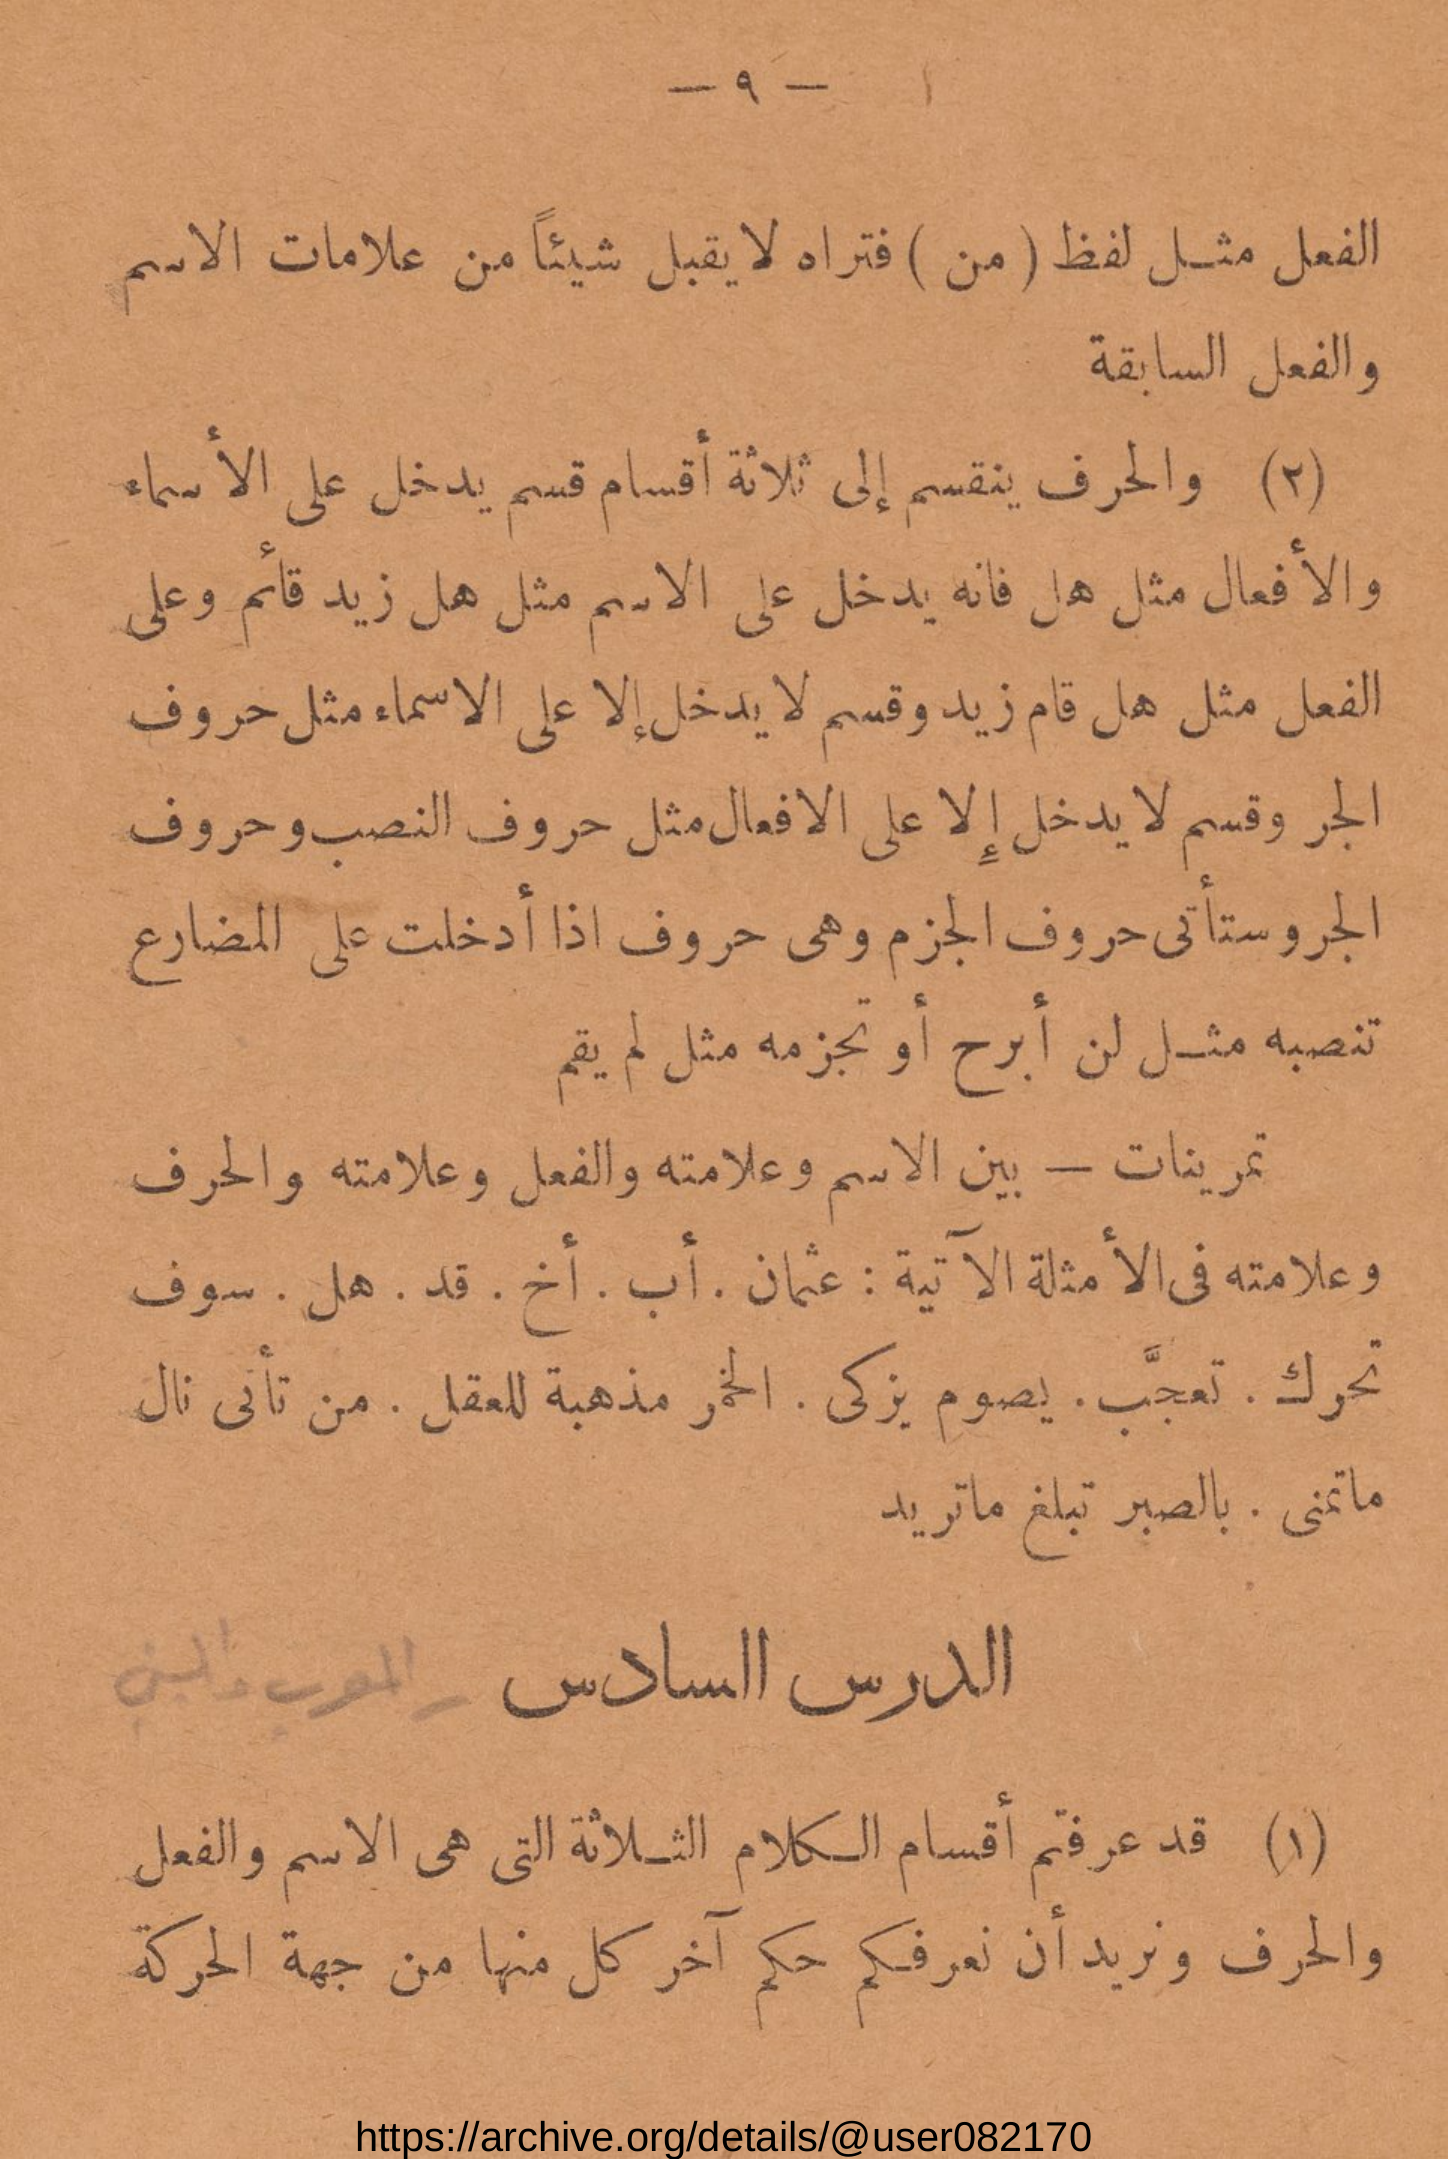 — ٩ —
الفعل مثل لفظ ( من ) فتراه لا يقبل شيئاً من علامات الاسم
والفعل السابقة
(٢) والحرف ينقسم إلى ثلاثة أقسام قسم يدخل على الأسماء
والأفعال مثل هل فانه يدخل على الاسم مثل هل زيد قائم وعلى
الفعل مثل هل قام زيد وقسم لا يدخل إلا على الاسماء مثل حروف
الجر وقسم لا يدخل إلا على الافعال مثل حروف النصب وحروف
الجر وستأتى حروف الجزم وهى حروف اذا أدخلت على المضارع
تنصبه مثل لن أبرح أو تجزمه مثل لم يقم
تمرينات — بين الاسم وعلامته والفعل وعلامته والحرف
وعلامته فى الأمثلة الآتية : عثمان . أب . أخ . قد . هل . سوف
تحرك . تعجَّب . يصوم يزكى . الخمر مذهبة للعقل . من تأنى نال
ماتمنى . بالصبر تبلغ ماتريد
الدرس السادس – المعرب والمبني
(١) قد عرفتم أقسام الكلام الثلاثة التى هى الاسم والفعل
والحرف ونريد أن نعرفكم حكم آخر كل منها من جهة الحركة
https://archive.org/details/@user082170